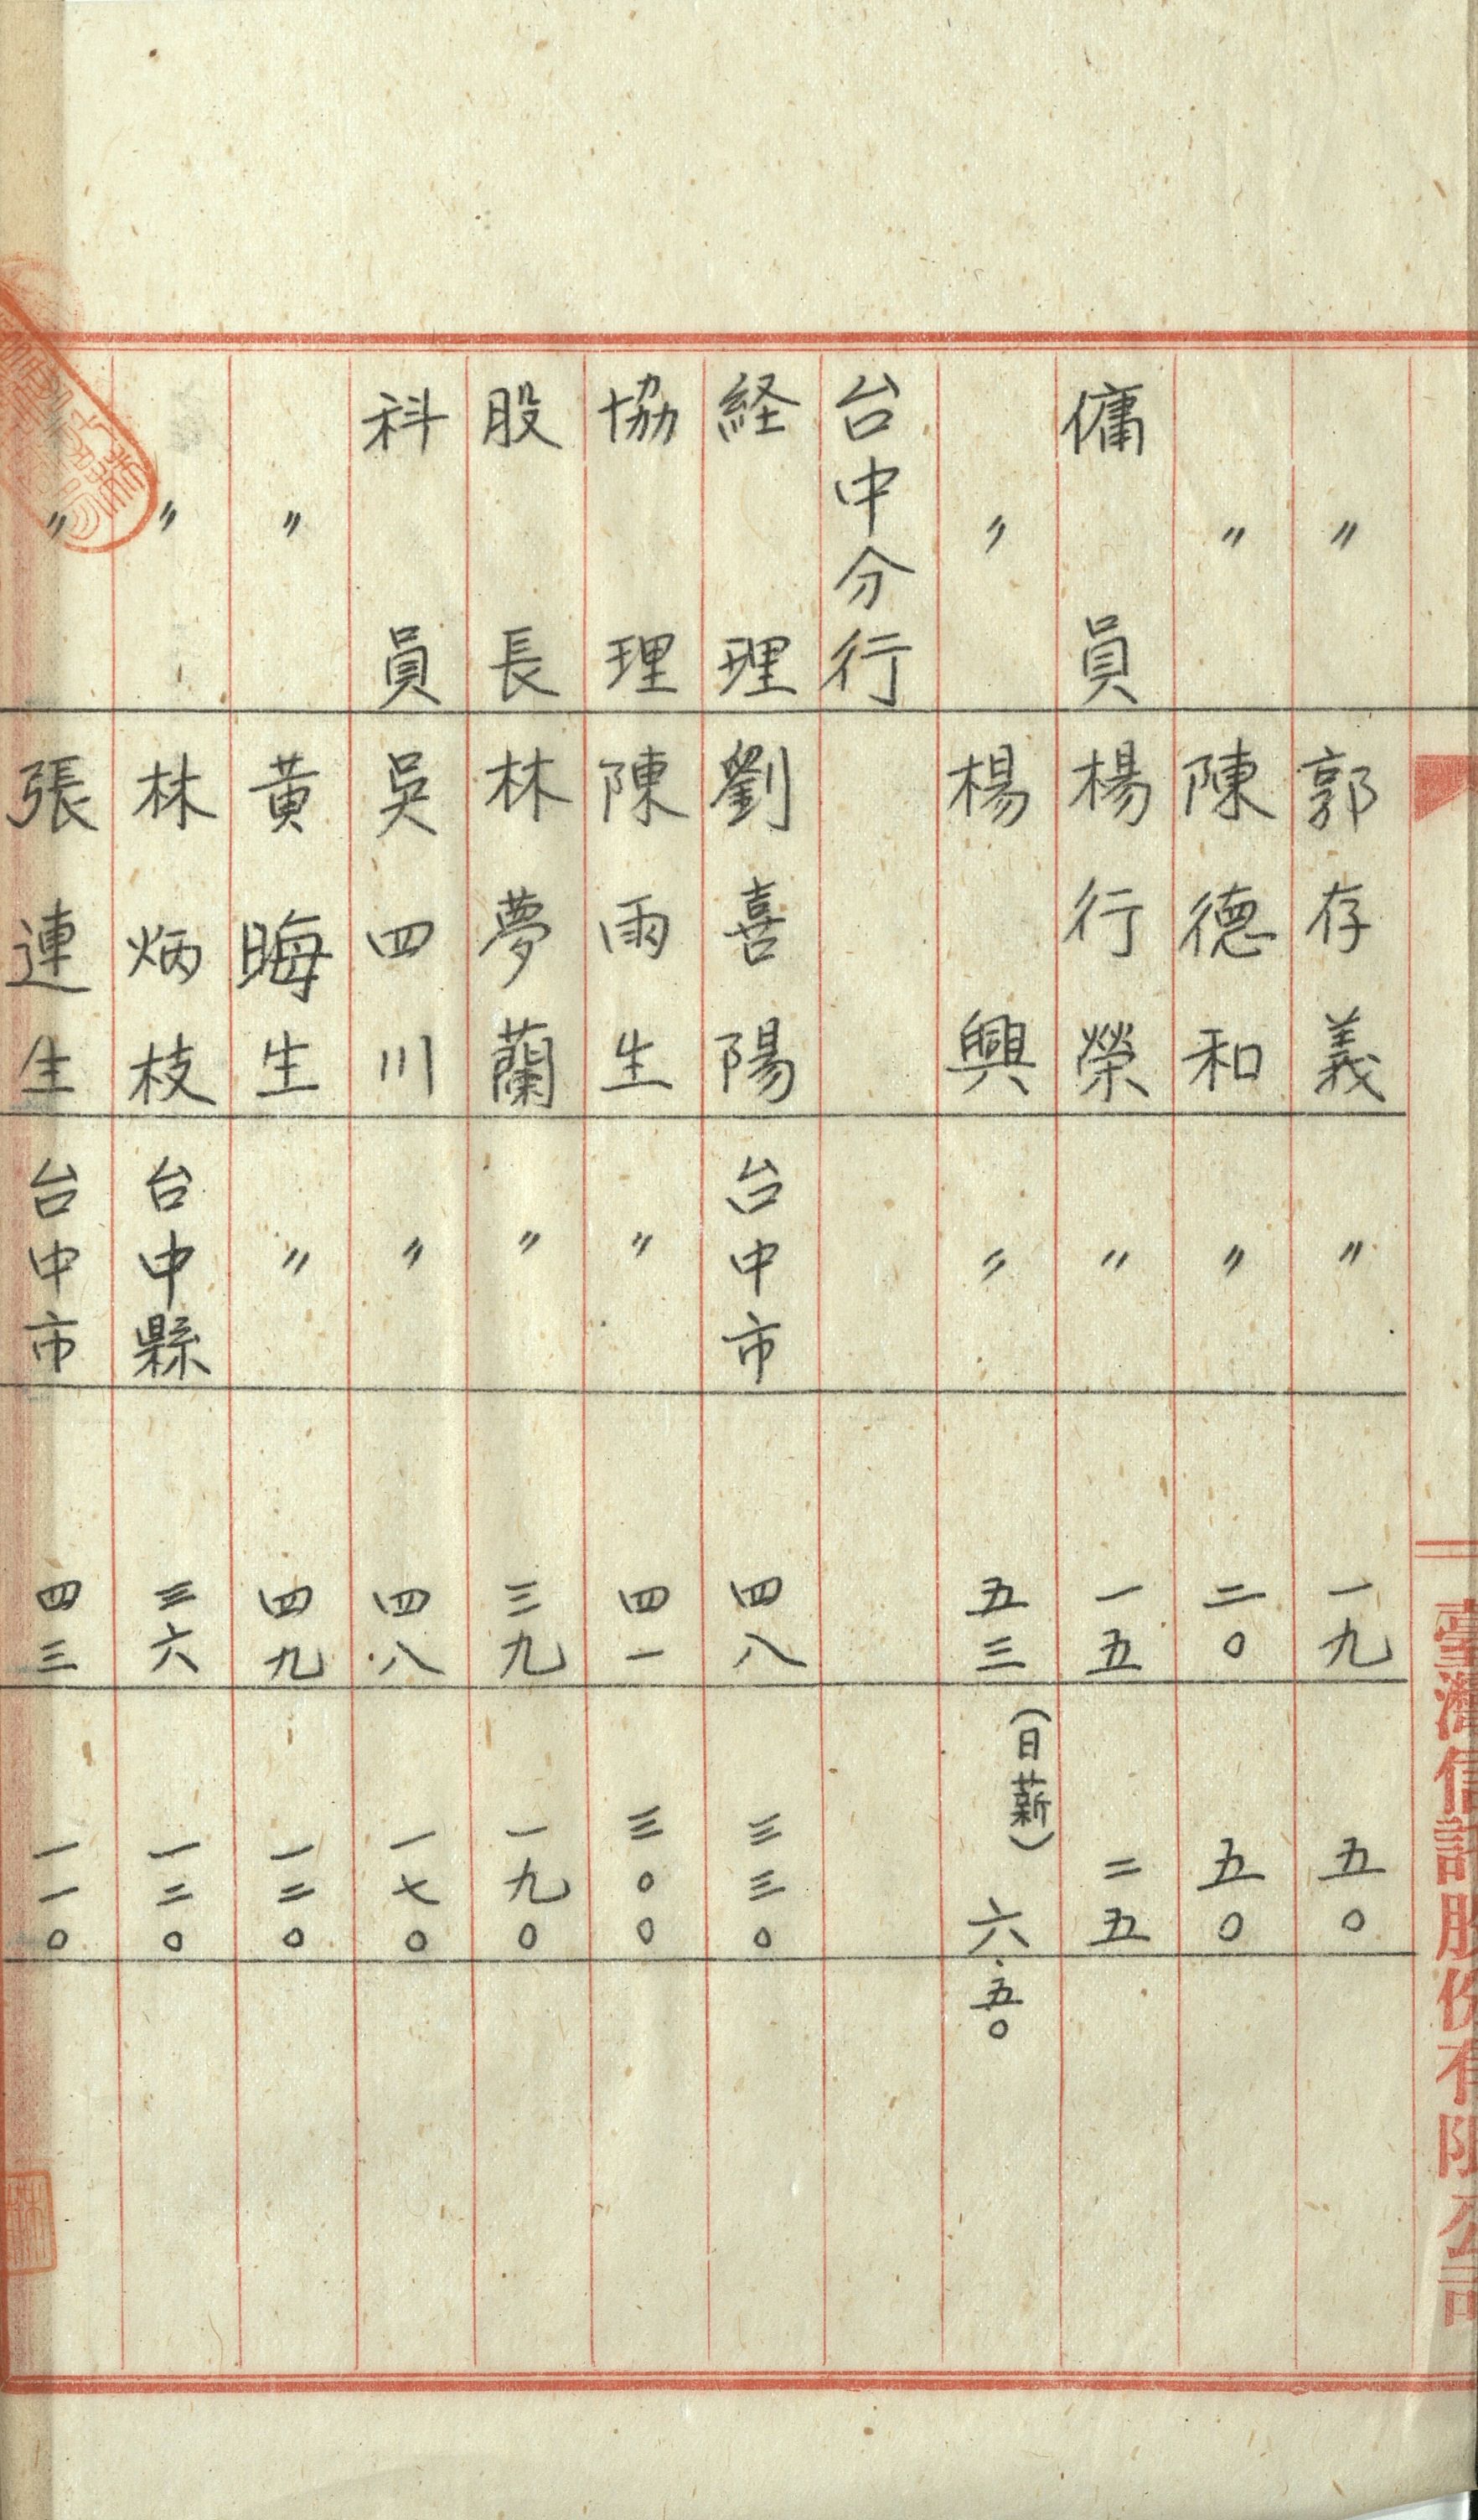 臺灣信託股份有限公司
〃 郭存義 〃 一九 五〇
〃 陳德和 〃 二〇 五〇
傭員 楊行榮 〃 一五 二五
〃 楊興 〃 五三 (日薪) 六.五〇
台中分行
経理 劉喜陽 台中市 四八 三三〇
協理 陳雨生 〃 四一 三〇〇
股長 林夢蘭 〃 三九 一九〇
科員 吳四川 〃 四八 一七〇
〃 黃晦生 〃 四九 一二〇
〃 林炳枝 台中縣 三六 一二〇
〃 張連生 台中市 四三 一一〇